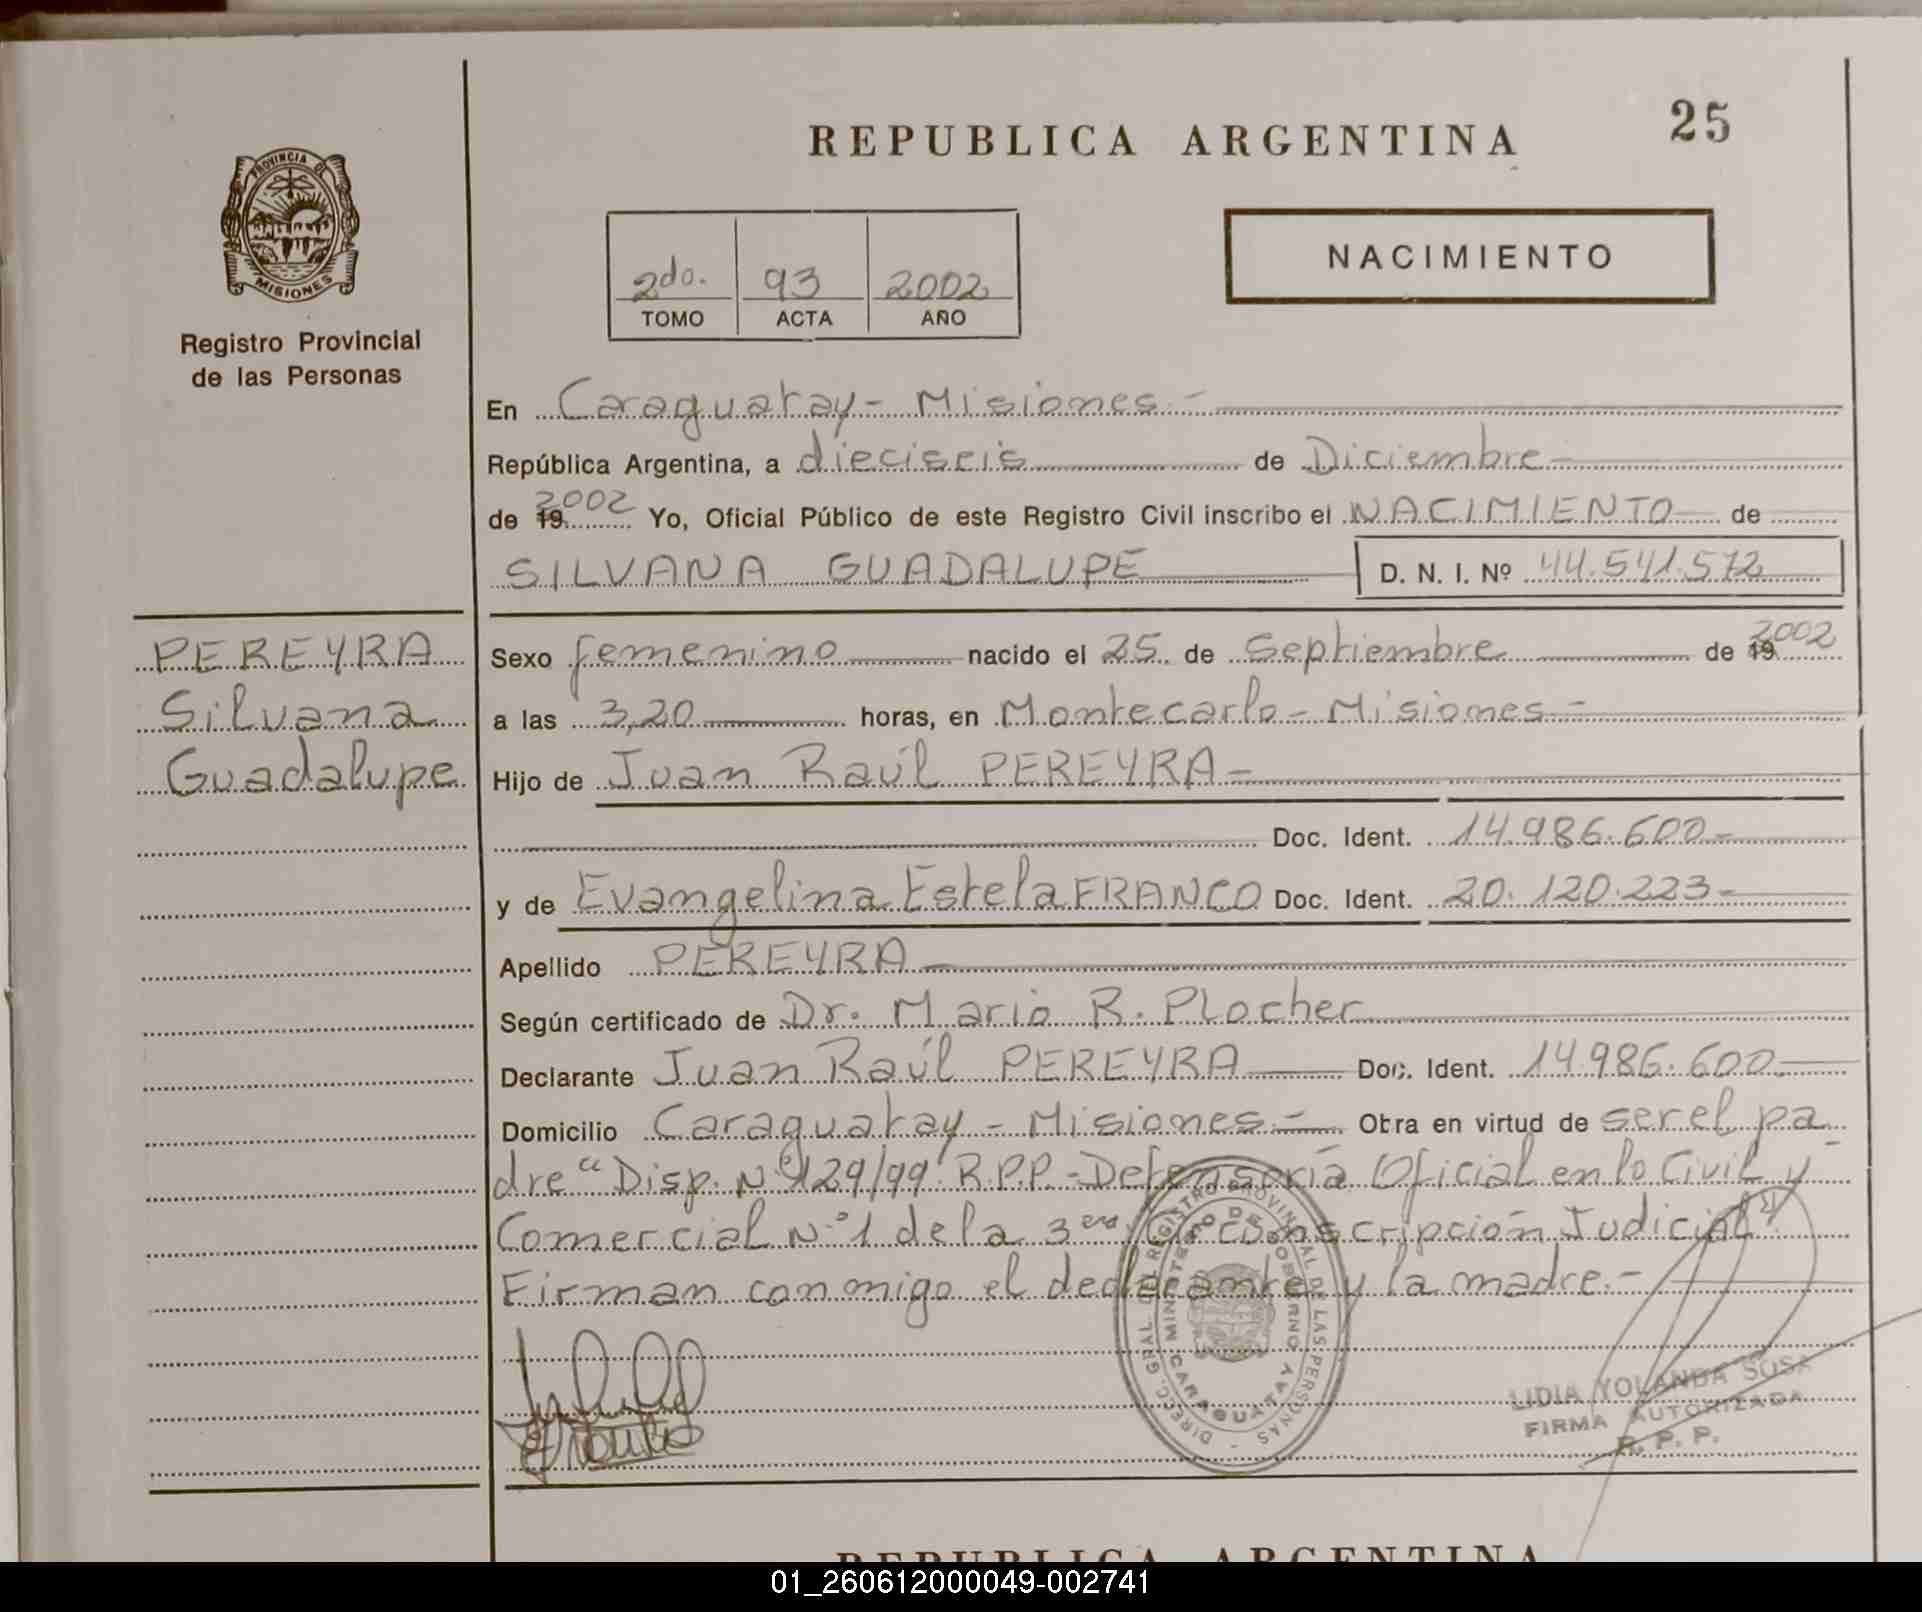 REPUBLICA ARGENTINA 25
PROVINCIA DE
MISIONES
Registro Provincial
de las Personas
2do. 93 2002
TOMO ACTA AÑO
NACIMIENTO
En Caraguatay - Misiones -
República Argentina, a dieciseis de Diciembre
de 19 2002 Yo, Oficial Público de este Registro Civil inscribo el NACIMIENTO de
SILVANA GUADALUPE D. N. I. Nº 44.541.572
PEREYRA
Silvana
Guadalupe
Sexo femenino nacido el 25 de Septiembre de 19 2002
a las 3,20 horas, en Montecarlo - Misiones -
Hijo de Juan Raúl PEREYRA -
Doc. Ident. 14.986.600 -
y de Evangelina Estela FRANCO Doc. Ident. 20.120.223 -
Apellido PEREYRA
Según certificado de Dr. Mario R. Plocher
Declarante Juan Raúl PEREYRA Doc. Ident. 14.986.600
Domicilio Caraguatay - Misiones - Obra en virtud de ser el pa
dre "Disp. Nº 129/99 R.P.P. - Defensoría Oficial en lo Civil y
Comercial Nº 1 de la 3era. Circonscripción Judicial"
Firman conmigo el declarante y la madre. -
DIRECC. GRAL. DEL REGISTRO PROVINCIAL DE LAS PERSONAS
MINISTERIO DE GOBIERNO Y
CARAGUATAY
LIDIA YOLANDA SOSA
FIRMA AUTORIZADA
R. P. P.
REPUBLICA ARGENTINA
01_260612000049-002741